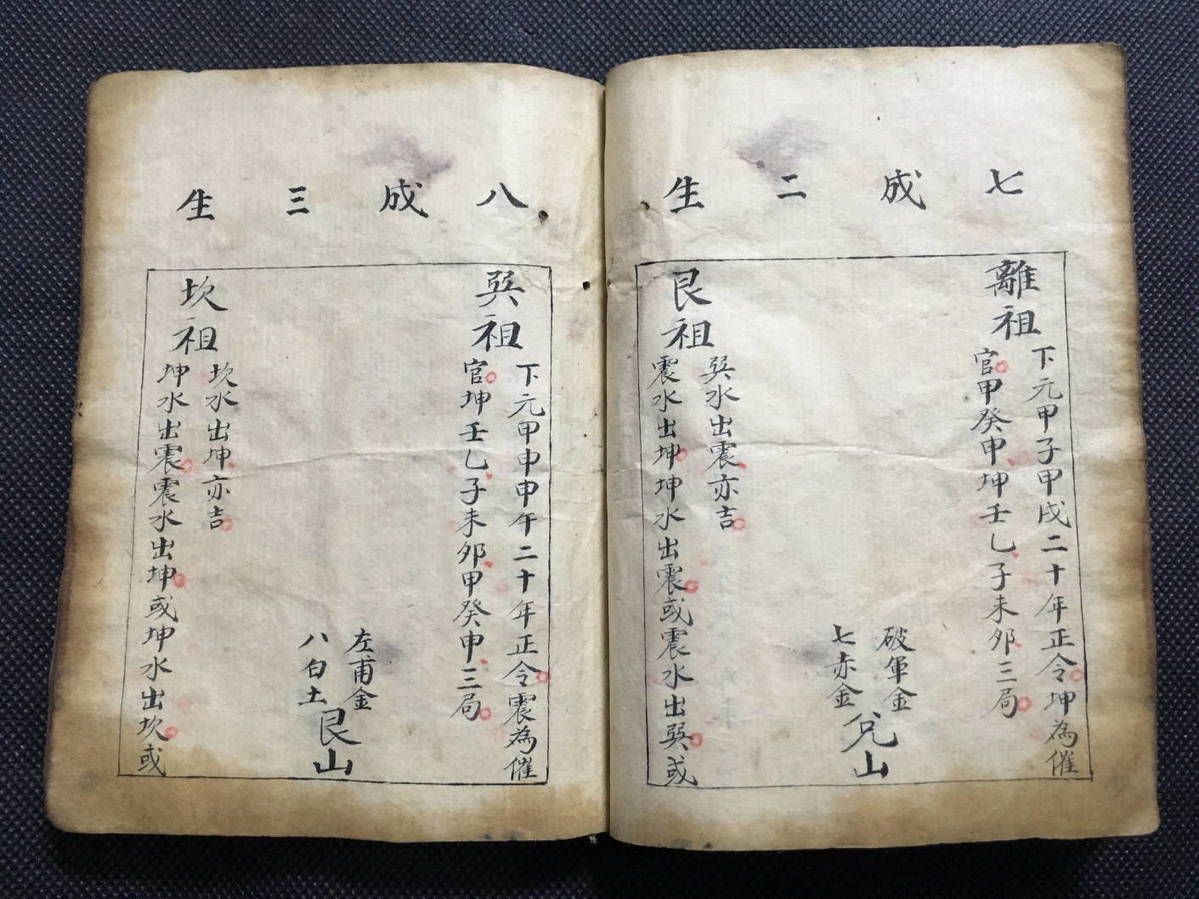 七成二生
離祖
下元甲子甲戌二十年正令坤為催
官甲癸申坤壬乙子未卯三局
破軍金
七赤金
兌山
艮祖
巽水出震亦吉
震水出坤坤水出震或震水出巽或
八成三生
巽祖
下元甲申甲午二十年正令震為催
官坤壬乙子未卯甲癸申三局
左甫金
八白土
艮山
坎祖
坎水出坤亦吉
坤水出震震水出坤或坤水出坎或